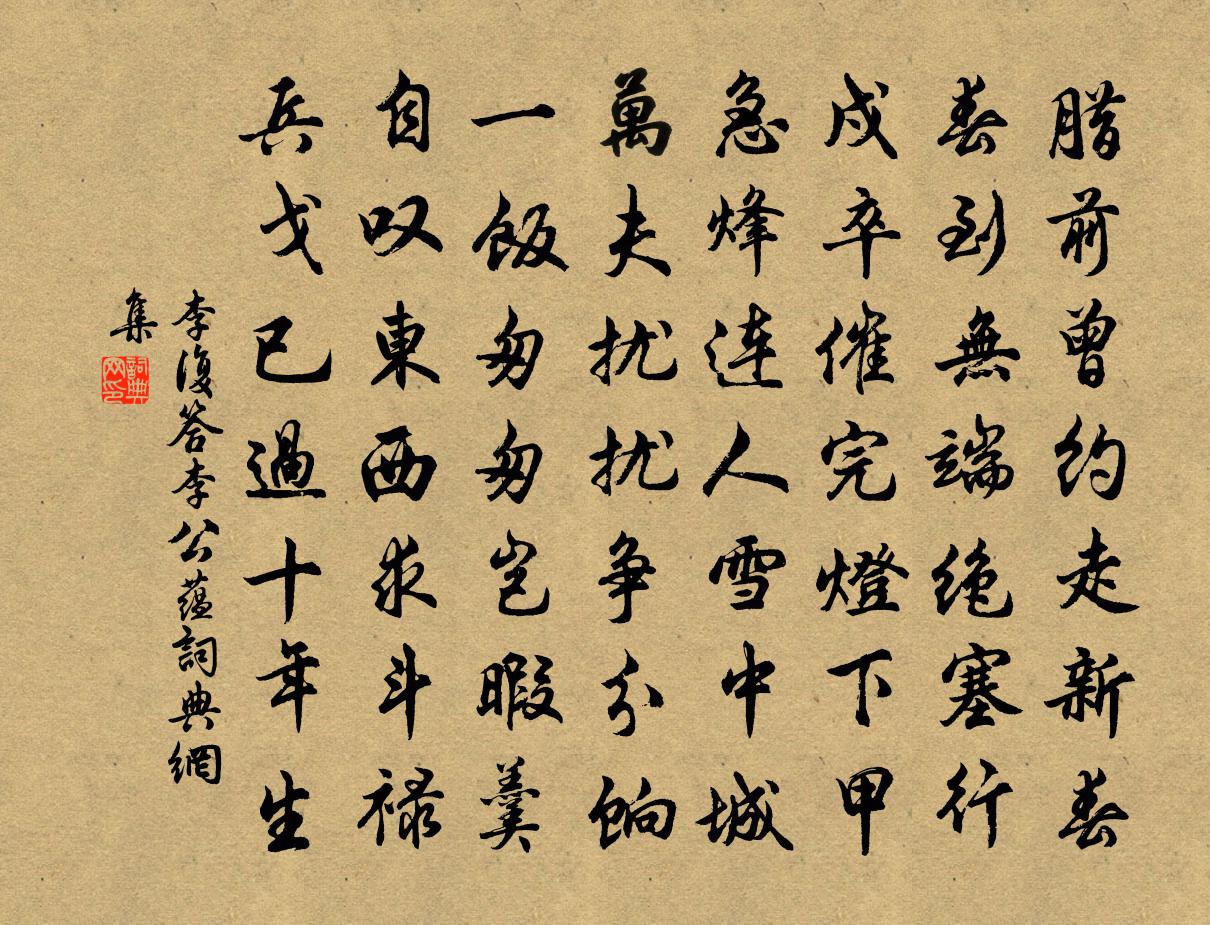 腊前曾约走新春
春到無端绝塞行
戍卒催完燈下甲
急烽连人雪中城
萬夫扰扰争分餉
一飯匆匆岂暇羹
自叹東西求斗禄
兵戈已過十年生
李復答李公蕴詞典網
集
詞典网印